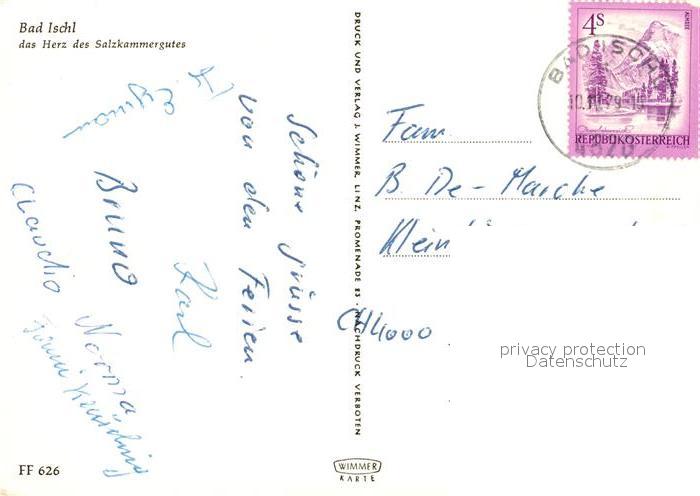 Bad Ischl
das Herz des Salzkammergutes
Schöne Grüsse
von den Ferien.
Karl
Bruno
Claudio
Norma
FF 626
DRUCK UND VERLAG J. WIMMER, LINZ, PROMENADE 23 · NACHDRUCK VERBOTEN
WIMMER
KARTE
4S
ALMSEE
REPUBLIK ÖSTERREICH
BAD ISCHL
4820
Fam.
B. De-Marche
Klein
CH 4000
privacy protection
Datenschutz